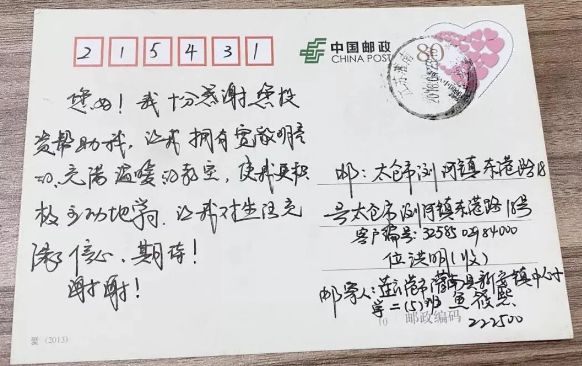 215431
中国邮政
CHINA POST
80
您好！我十分感谢您投
资帮助我，让我拥有宽敞明亮
的、充满温暖的教室，使我更积
极主动地学习，让我对生活充
满了信心，期待！
谢谢！
邮：太仓市浏河镇东港路18
号太仓市浏河镇东港路18号
客户编号：32585 02984000
位洪明（收）
邮寄人：连云港市灌南县新安镇中心小
学二（5）班 鱼筱熙
邮政编码
222500
爱 (2013)